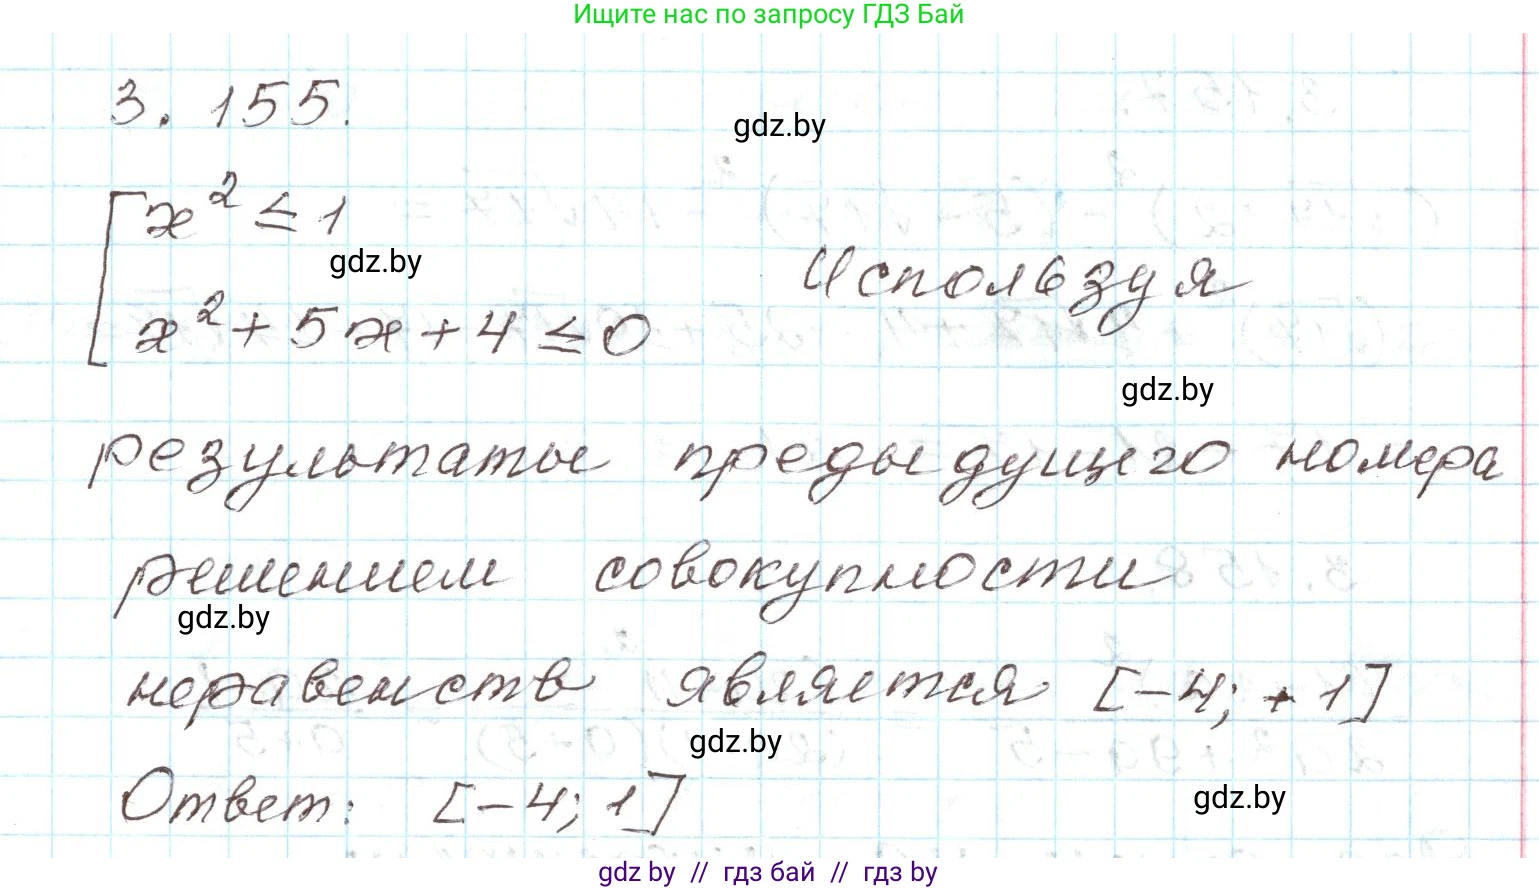 Ищите нас по запросу ГДЗ Бай
3.155.
gdz.by
x² ≤ 1
gdz.by
Используя
x² + 5x + 4 ≤ 0
gdz.by
результаты предыдущего номера
решением совокупности
gdz.by
неравенств является [-4; +1]
gdz.by
Ответ: [-4; 1]
gdz.by
gdz by // гдз бай // гдз by